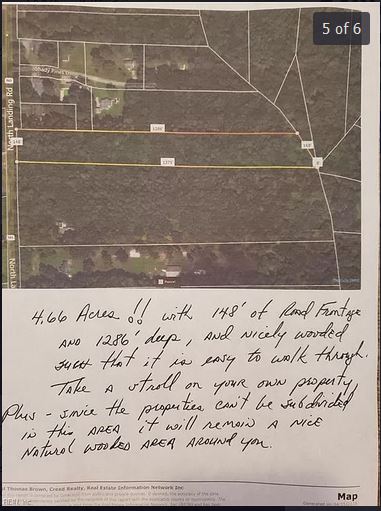 5 of 6
Shady Pines Drive
North Landing Rd
1286'
148'
148'
1375'
8'
North L
4.66 Acres!! with 148' of Road Frontage
AND 1286' deep, AND nicely wooded
such that it is easy to walk through.
Take a stroll on your own property
Plus - since the properties can't be subdivided
in this area it will remain a nice
natural wooded area around you.
Thomas Brown, Creed Realty, Real Estate Information Network Inc
Map
REIN, Inc